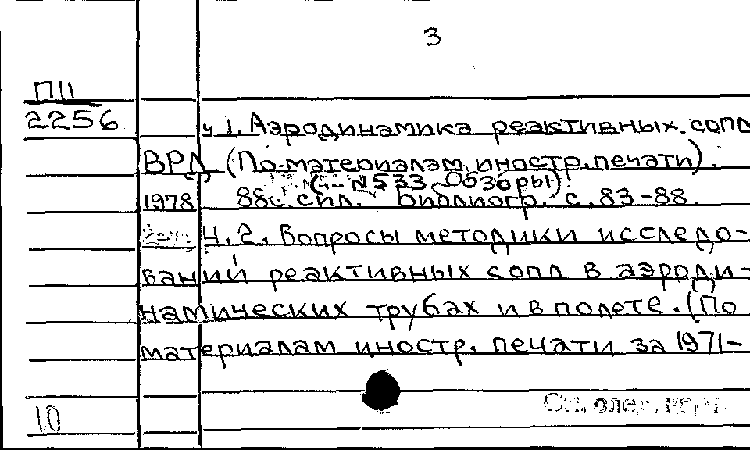 3
ПII
2256
ч 1. Аэродинамика реактивных сопл
ВРД (По материалам иностр. печати).
(– №533 Обзоры).
1978 88с. с ил. Библиогр. с. 83-88.
Ч. 2. Вопросы методики исследо-
ваний реактивных сопл в аэроди-
намических трубах и в полете. (По
материалам иностр. печати за 1971-
10
См. след. карт.